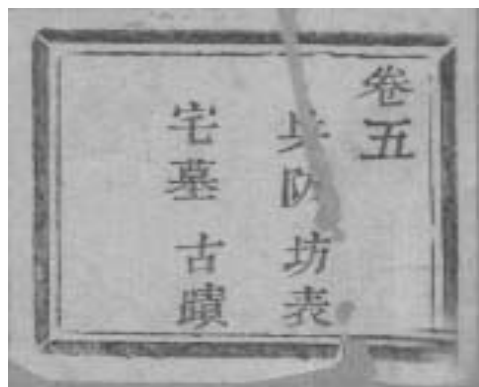 卷五
兵防 坊表
宅墓 古蹟